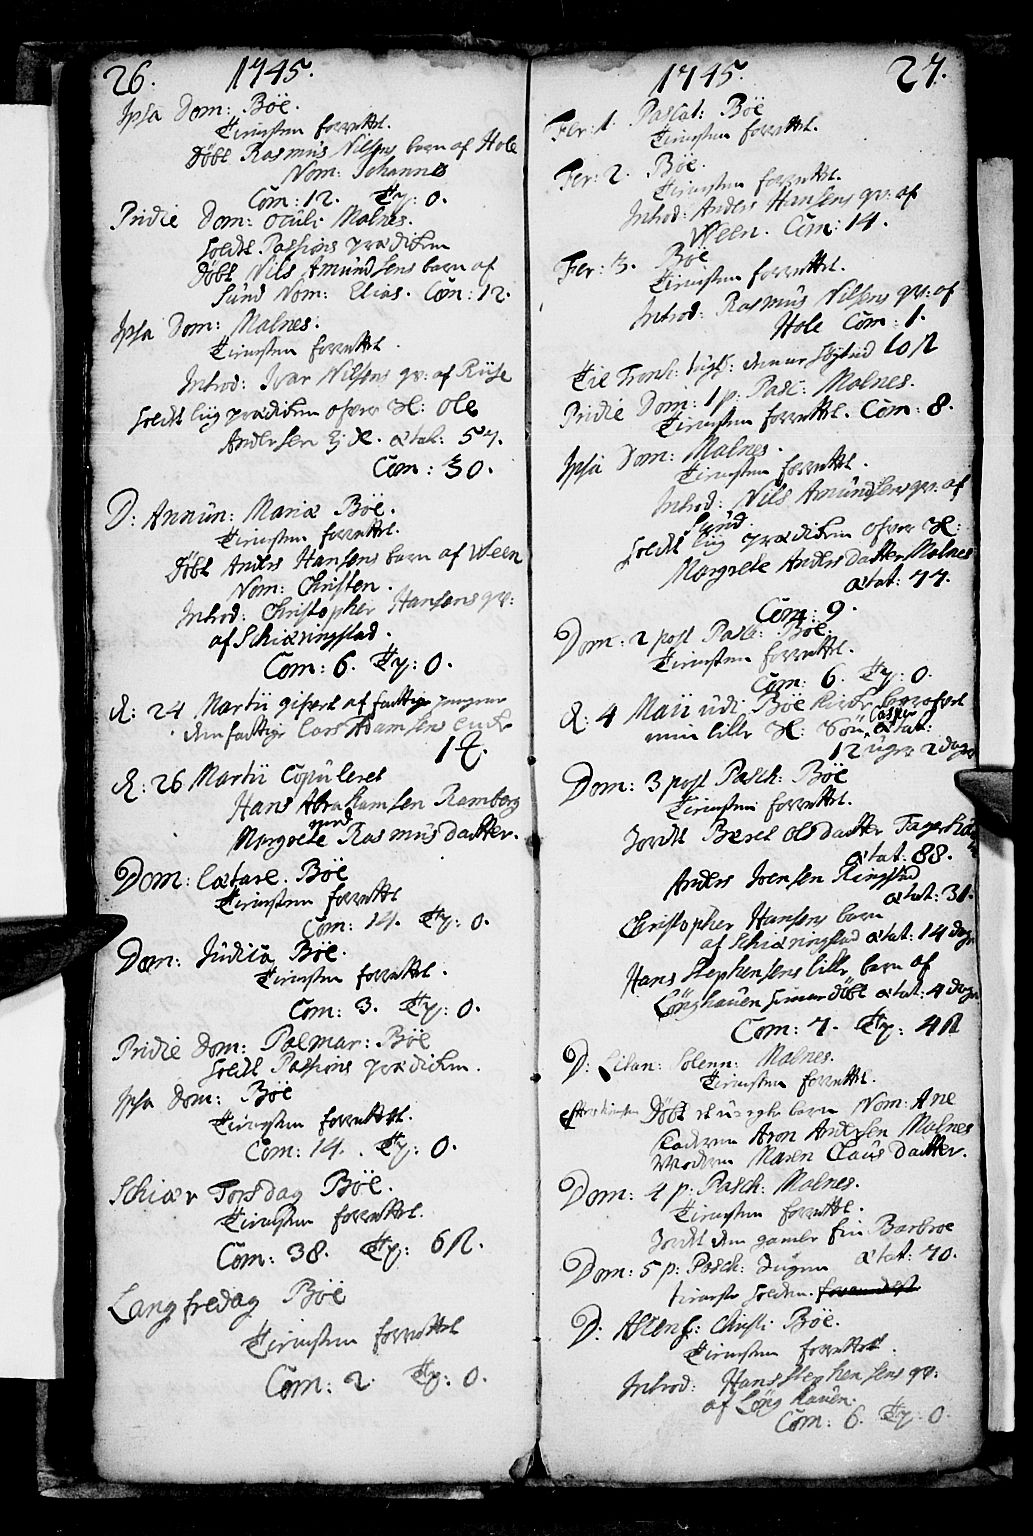 26. 1745.
Ipsa Dom: Böe.
Tienesten forrettet.
Döbt Rasmus Nilsens barn af Hole
Nom: Johannes
Com: 12. Ty: 0.
Pridie Dom: Oculi Malnes.
holdt Passions prædiken
Döbt Nils Amundsens barn af
Sund Nom: Elias. Com: 12.
Ipsa Dom: Malnes.
Tienesten forrettet.
Introd: Ivar Nilsens qv: af
holdt liig prædiken ofver Hr: Ole
Andersen ætat: 57.
Com: 30.
D: Annun: Mariæ Böe.
Tienesten forrettet.
Döbt Anders Hansens barn af Ween
Nom: Christen.
Introd: Christopher Hansens qv:
af Schiæringstad.
Com: 6. Ty: 0.
d: 24 Martii gifvet af fattige pengene
den fattige Lars Adamsens
d: 26 Martii Copuleret
Hans Abrahamsen Ramberg
med
Margrete Rasmusdatter.
Dom: Lætare. Böe
Tienesten forrettet
Com: 14. Ty: 0.
Dom: Judica Böe.
Tienesten forrettet.
Com: 3. Ty: 0.
Pridie Dom: Palmar: Böe
holdt Passions prædiken.
Ipsa Dom: Böe
Tienesten forrettet.
Com: 14. Ty: 0.
Schiær Torsdag Böe.
Tienesten forrettet.
Com: 38. Ty: 6
Langfredag Böe
Tienesten forrettet
Com: 2. Ty: 0.
1745. 27.
Fer: 1. Pascat: Böe
Tienesten forrettet.
Fer: 2. Böe.
Tienesten forrettet.
Introd: Anders Hansens qv: af
Ween. Com: 14.
Fer: 3. Böe
Tienesten forrettet.
Introd: Rasmus Nilsens qv: af
Hole Com: 1.
Til Trond: denne Höytid
Pridie Dom: 1 p: Pasc: Malnes.
Tienesten forrettet. Com: 8.
Ipsa Dom: Malnes.
Tienesten forrettet.
Introd: Nils Amundsens qv: af
Sund.
holdt liig prædiken ofver
Margrete Andersdatter Malnes
ætat: 77.
Com: 9.
Dom: 2 post Pasc: Böe.
Tienesten forrettet.
Com: 6. Ty: 0.
d: 4 Maii udi Böe kirke
min lille Sön Casper ætat:
12 uger 2 dage
Dom: 3 post Pasch: Böe
Tienesten forrettet.
Jordet Beret Olsdatter
ætat: 88.
Anders Joensen Ringstad
ætat: 31.
Christopher Hansens barn
af Schiæringstad ætat: 14 dage
Hans Stephensens lille barn af
Langhaven döbt ætat: 4 dage
Com: 7. Ty: 4
D: Litan: Solenn: Malnes.
Tienesten forrettet.
Döbt et uægte barn Nom: Ane
Faderen Aron Andersen Malnes
Moderen Maren Clausdatter.
Dom: 4 p: Pasch: Malnes.
Tienesten forrettet.
Jordet den gamle Barbroe
ætat: 70.
Dom: 5 p: Pasch:
holden.
D: Ascens: Christi Böe.
Tienesten forrettet.
Introd: Hans Stephensens qv:
af Langhaven.
Com: 6. Ty: 0.